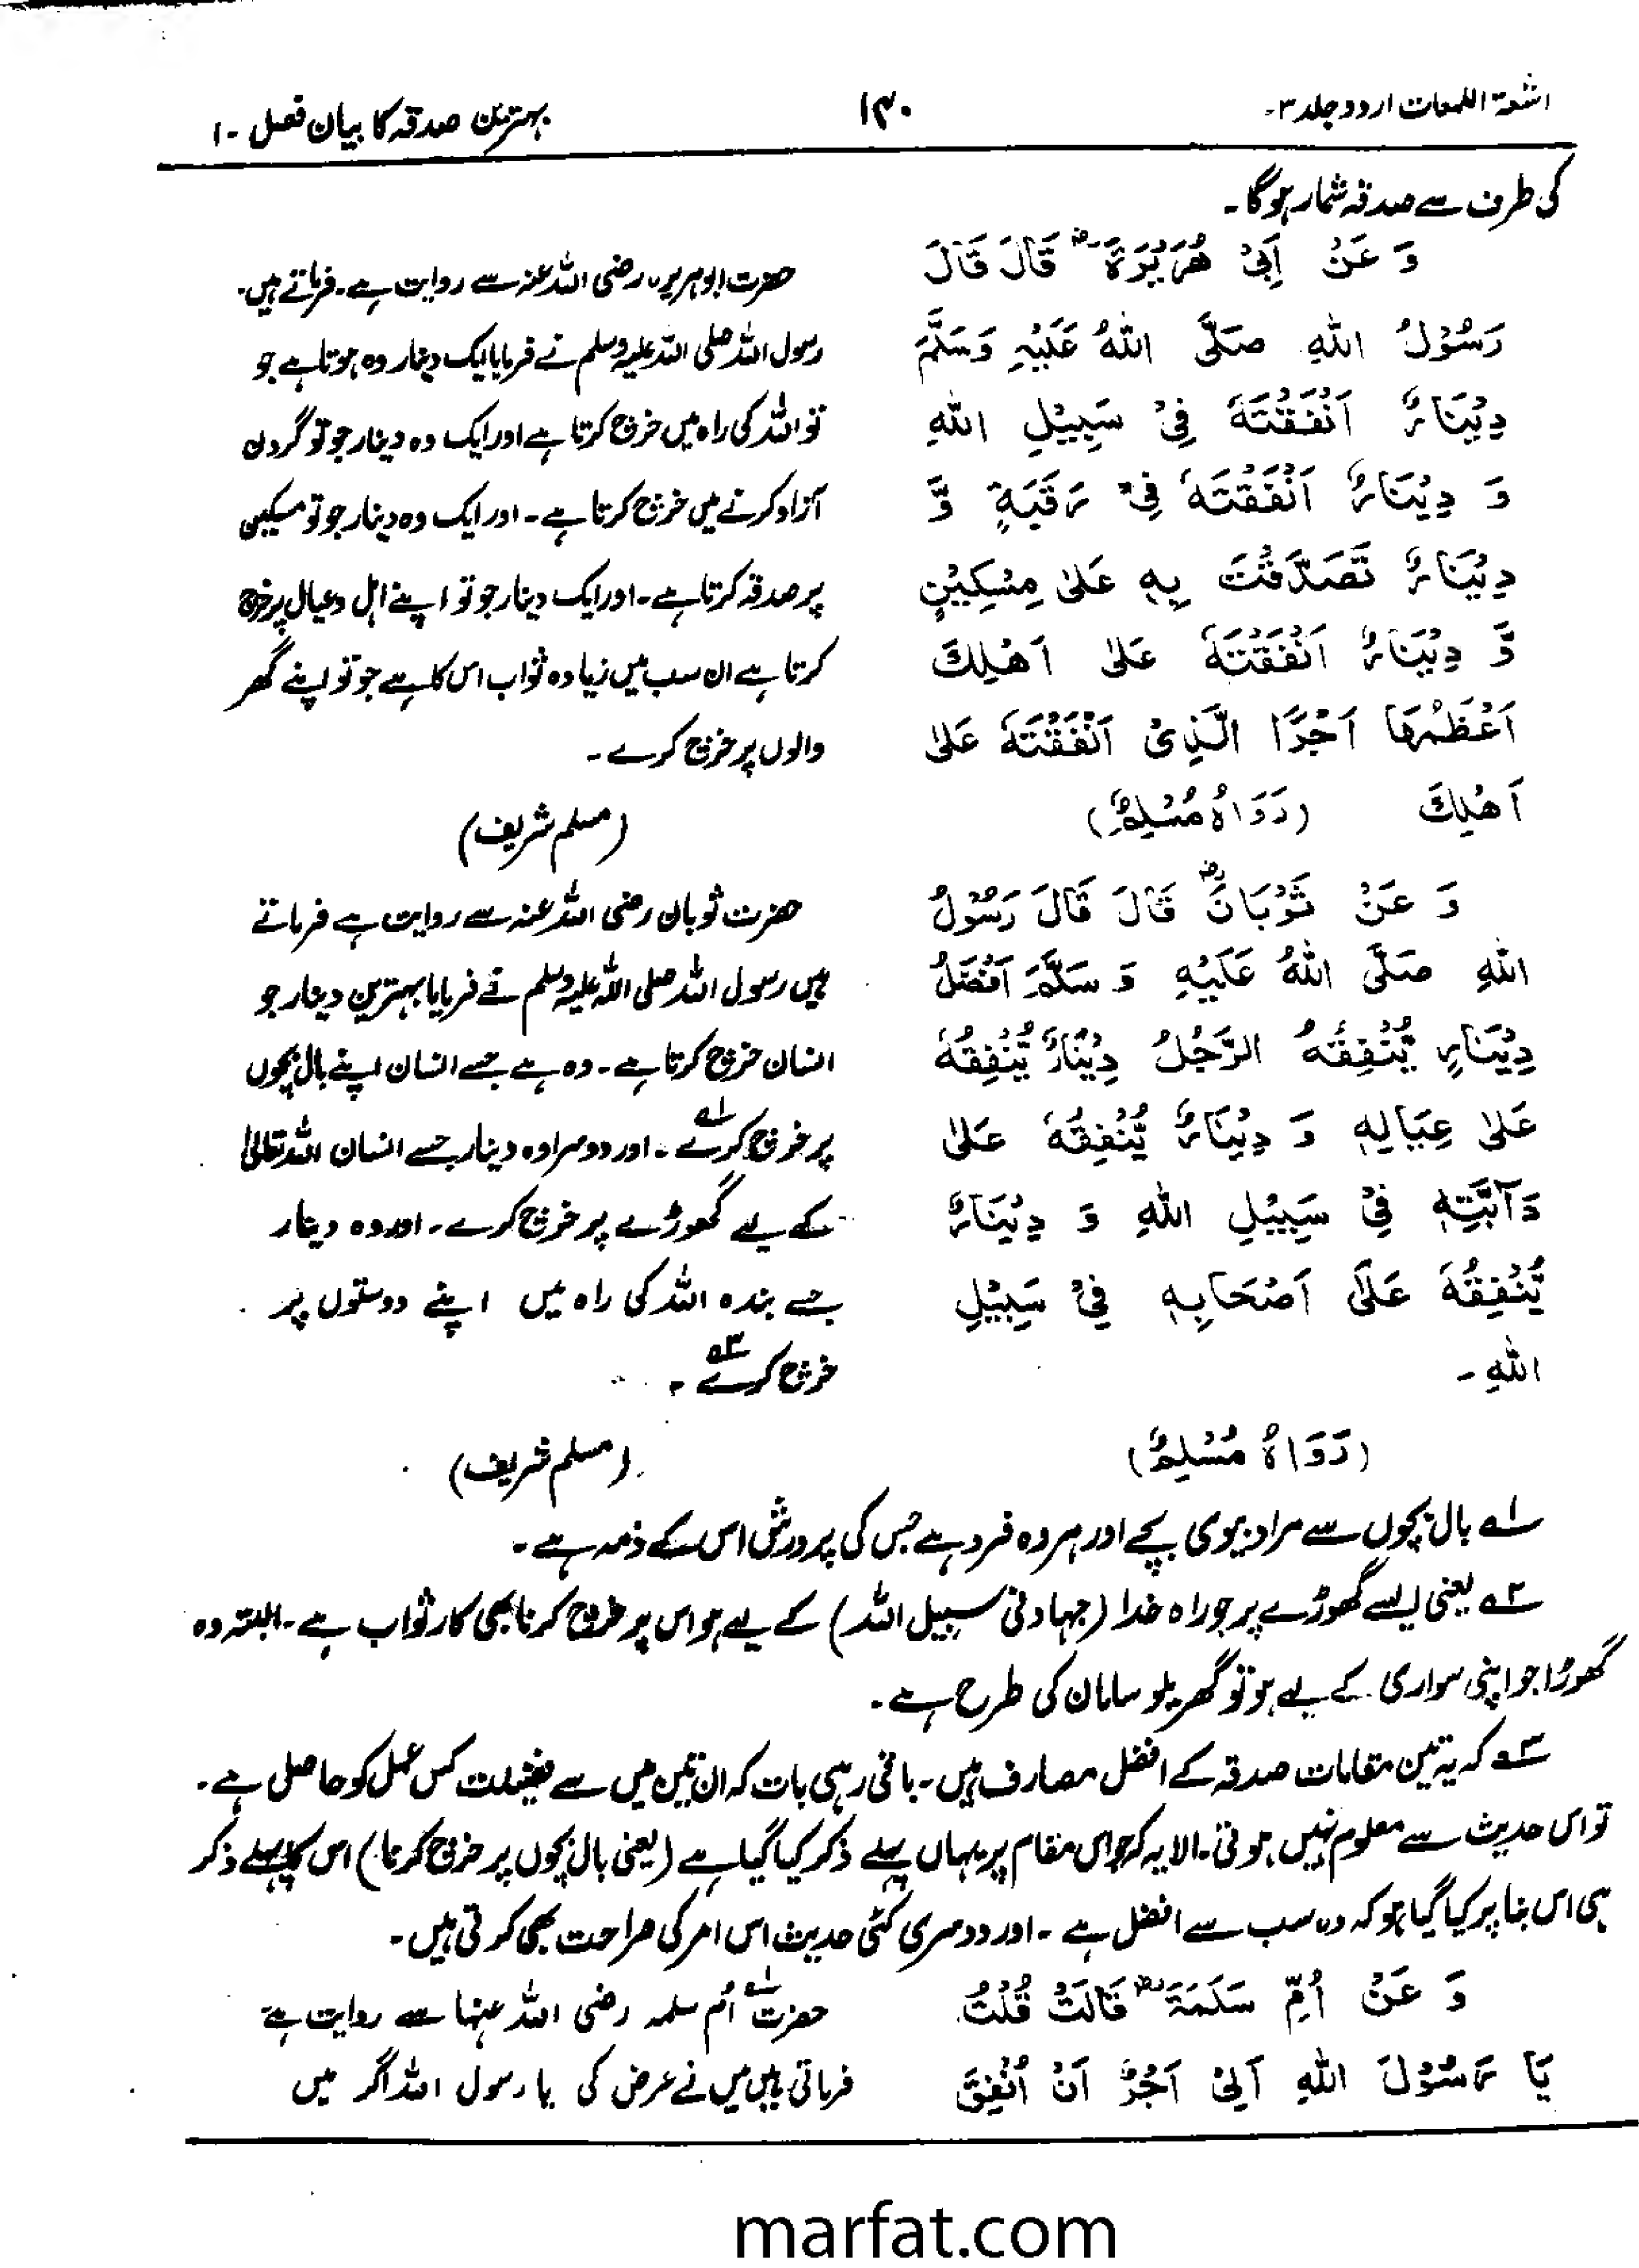 اشعۃ اللمعات اردو جلد ۳۔
۱۴۰
بہترین صدقہ کا بیان فصل ۔ ۱
کی طرف سے صدقہ شمار ہوگا۔
وَ عَنْ اَبِیْ هُرَيْرَةَ ؓ قَالَ قَالَ
رَسُوْلُ اللهِ صَلَّی اللهُ عَلَيْهِ وَسَلَّمَ
دِيْنَارٌ اَنْفَقْتَهٗ فِیْ سَبِيْلِ اللهِ
وَ دِيْنَارٌ اَنْفَقْتَهٗ فِیْ رَقَبَةٍ وَّ
دِيْنَارٌ تَصَدَّقْتَ بِهٖ عَلٰی مِسْكِيْنٍ
وَّ دِيْنَارٌ اَنْفَقْتَهٗ عَلٰی اَهْلِكَ
اَعْظَمُهَا اَجْرًا الَّذِیْ اَنْفَقْتَهٗ عَلٰی
اَهْلِكَ (رَوَاهُ مُسْلِمٌ)
حضرت ابوہریرہ رضی اللہ عنہ سے روایت ہے۔ فرماتے ہیں۔
رسول اللہ صلی اللہ علیہ وسلم نے فرمایا ایک دینار وہ ہوتا ہے جو
تو اللہ کی راہ میں خرچ کرتا ہے اور ایک وہ دینار جو تو گردن
آزاد کرنے میں خرچ کرتا ہے۔ اور ایک وہ دینار جو تو مسکین
پر صدقہ کرتا ہے۔ اور ایک دینار جو تو اپنے اہل و عیال پر خرچ
کرتا ہے ان سب میں زیادہ ثواب اس کا ہے جو تو اپنے گھر
والوں پر خرچ کرے ۔
(مسلم شریف)
وَ عَنْ ثَوْبَانَ ؓ قَالَ قَالَ رَسُوْلُ
اللهِ صَلَّی اللهُ عَلَيْهِ وَ سَلَّمَ اَفْضَلُ
دِيْنَارٍ يُّنْفِقُهُ الرَّجُلُ دِيْنَارٌ يُّنْفِقُهٗ
عَلٰی عِيَالِهٖ وَ دِيْنَارٌ يُّنْفِقُهٗ عَلٰی
دَآبَّتِهٖ فِیْ سَبِيْلِ اللهِ وَ دِيْنَارٌ
يُّنْفِقُهٗ عَلٰی اَصْحَابِهٖ فِیْ سَبِيْلِ
اللهِ ۔
(رَوَاهُ مُسْلِمٌ)
حضرت ثوبان رضی اللہ عنہ سے روایت ہے فرماتے
ہیں رسول اللہ صلی اللہ علیہ وسلم نے فرمایا بہترین دینار جو
انسان خرچ کرتا ہے ۔ وہ ہے جسے انسان اپنے بال بچوں
پر خرچ کرے ۱؎ ۔ اور دوسرا وہ دینار جسے انسان اللہ تعالیٰ
کے لیے گھوڑے پر خرچ کرے ۔ اور وہ دینار
جسے بندہ اللہ کی راہ میں اپنے دوستوں پر
خرچ کرے ۳؎ ۔
(مسلم شریف)
۱؎ بال بچوں سے مراد بیوی بچے اور ہر وہ فرد ہے جس کی پرورش اس کے ذمہ ہے ۔
۲؎ یعنی ایسے گھوڑے پر جو راہ خدا (جہاد فی سبیل اللہ) کے لیے ہو اس پر خرچ کرنا بھی کار ثواب ہے ۔ البتہ وہ
گھوڑا جو اپنی سواری کے لیے ہو تو گھریلو سامان کی طرح ہے ۔
۳؎ کہ یہ تین مقامات صدقہ کے افضل مصارف ہیں ۔ باقی رہی بات کہ ان تین میں سے فضیلت کس عمل کو حاصل ہے ۔
تو اس حدیث سے معلوم نہیں ہوتی ۔ الا یہ کہ جو اس مقام پر یہاں پہلے ذکر کیا گیا ہے (یعنی بال بچوں پر خرچ کرنا) اس کا پہلے ذکر
ہی اس بنا پر کیا گیا ہو کہ وہ سب سے افضل ہے ۔ اور دوسری کئی حدیث اس امر کی صراحت بھی کرتی ہیں ۔
وَ عَنْ اُمِّ سَلَمَةَ ؓ قَالَتْ قُلْتُ
يَا رَسُوْلَ اللهِ اَلِیْ اَجْرٌ اَنْ اُنْفِقَ
حضرت ۱؎ اُم سلمہ رضی اللہ عنہا سے روایت ہے
فرماتی ہیں میں نے عرض کی یا رسول اللہ اگر میں
marfat.com